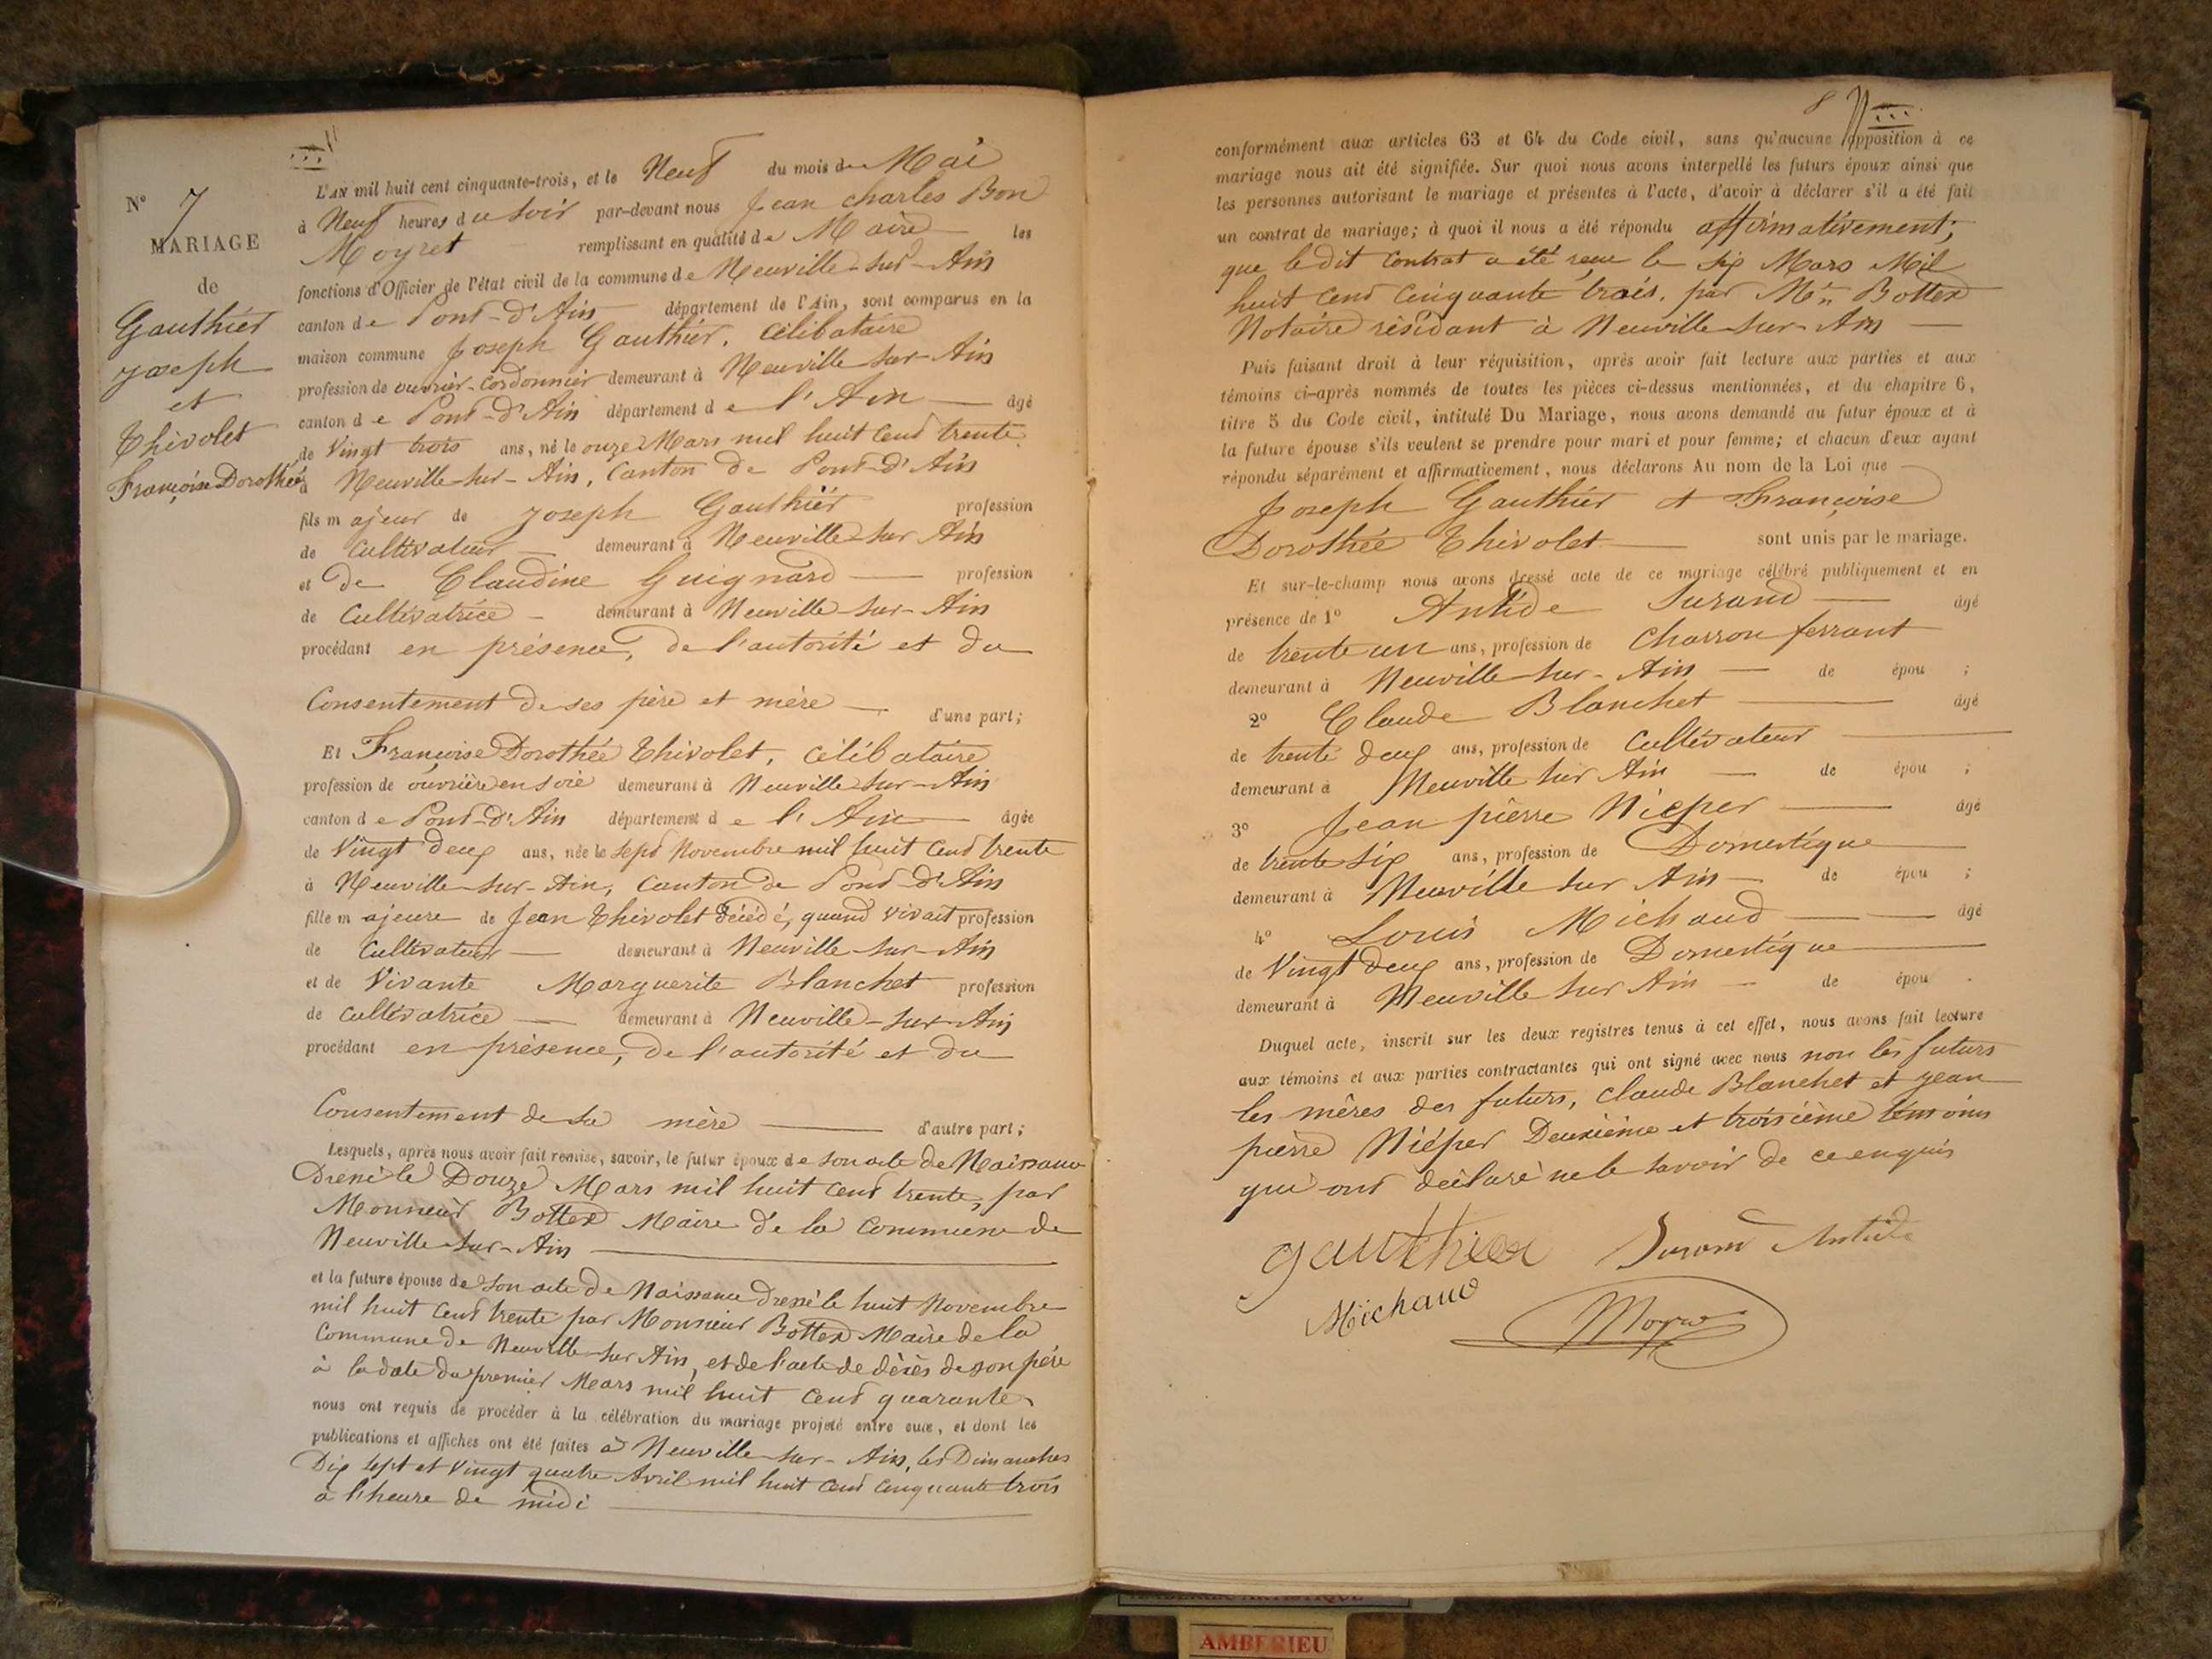 N° 7
MARIAGE
de
Gauthier
Joseph
et
Thivolet
Françoise Dorothée
L'AN mil huit cent cinquante-trois, et le Neuf du mois de Mai
à Neuf heures du Soir par-devant nous Jean Charles Bon
Moyret remplissant en qualité de Maire les
fonctions d'Officier de l'état civil de la commune de Neuville-sur-Ain
canton de Pont-d'Ain département de l'Ain, sont comparus en la
maison commune Joseph Gauthier, Célibataire
profession de ouvrier-cordonnier demeurant à Neuville sur-Ain
canton de Pont-d'Ain département de l'Ain âgé
de Vingt trois ans, né le onze Mars mil huit Cent trente
à Neuville-sur-Ain, Canton de Pont-d'Ain
fils majeur de Joseph Gauthier profession
de Cultivateur demeurant à Neuville-sur Ain
et de Claudine Guignard profession
de Cultivatrice demeurant à Neuville-sur-Ain
procédant en présence, de l'autorité et du
Consentement de ses père et mère d'une part;
Et Françoise Dorothée Thivolet, Célibataire
profession de ouvrière en soie demeurant à Neuville sur-Ain
canton de Pont-d'Ain département de l'Ain âgée
de Vingt deux ans, née le sept Novembre mil huit Cent trente
à Neuville-sur-Ain, Canton de Pont-d'Ain
fille majeure de Jean Thivolet décédé, quand vivait profession
de Cultivateur demeurant à Neuville-sur-Ain
et de Vivante Marguerite Blanchet profession
de Cultivatrice demeurant à Neuville-sur-Ain
procédant en présence, de l'autorité et du
Consentement de sa mère d'autre part;
Lesquels, après nous avoir fait remise, savoir, le futur époux de son acte de Naissance
Dressé le Douze Mars mil huit Cent trente, par
Monsieur Bottex Maire de la Commune de
Neuville-sur-Ain
et la future épouse de son acte de Naissance Dressé le huit Novembre
mil huit Cent trente par Monsieur Bottex Maire de la
Commune de Neuville-sur Ain, et de l'acte de décès de son père
à la date du premier Mars mil huit Cent quarante
nous ont requis de procéder à la célébration du mariage projeté entre eux, et dont les
publications et affiches ont été faites à Neuville-sur-Ain, les Dimanches
Dix sept et vingt quatre Avril mil huit Cent Cinquante trois
à l'heure de midi
8
conformément aux articles 63 et 64 du Code civil, sans qu'aucune opposition à ce
mariage nous ait été signifiée. Sur quoi nous avons interpellé les futurs époux ainsi que
les personnes autorisant le mariage et présentes à l'acte, d'avoir à déclarer s'il a été fait
un contrat de mariage; à quoi il nous a été répondu affirmativement;
que le dit Contrat a été reçu le six Mars Mil
huit Cent Cinquante trois, par Me Bottex
Notaire résidant à Neuville-sur-Ain
Puis faisant droit à leur réquisition, après avoir fait lecture aux parties et aux
témoins ci-après nommés de toutes les pièces ci-dessus mentionnées, et du chapitre 6,
titre 5 du Code civil, intitulé Du Mariage, nous avons demandé au futur époux et à
la future épouse s'ils veulent se prendre pour mari et pour femme; et chacun d'eux ayant
répondu séparément et affirmativement, nous déclarons Au nom de la Loi que
Joseph Gauthier et Françoise
Dorothée Thivolet sont unis par le mariage.
Et sur-le-champ nous avons dressé acte de ce mariage célébré publiquement et en
présence de 1° Antide Jurand âgé
de trente un ans, profession de Charron ferrant
demeurant à Neuville-sur-Ain de épou ;
2° Claude Blanchet âgé
de trente deux ans, profession de Cultivateur
demeurant à Neuville sur Ain de épou ;
3° Jean pierre Niéper âgé
de trente six ans, profession de Domestique
demeurant à Neuville sur Ain de épou ;
4° Louis Michaud âgé
de Vingt deux ans, profession de Domestique
demeurant à Neuville sur Ain de épou .
Duquel acte, inscrit sur les deux registres tenus à cet effet, nous avons fait lecture
aux témoins et aux parties contractantes qui ont signé avec nous non les futurs
les mères des futurs, Claude Blanchet et Jean
pierre Niéper Deuxième et troisième témoins
qui ont déclaré ne le savoir de ce enquis
gauthier Jurand Antide
Michaud Moyret
AMBERIEU